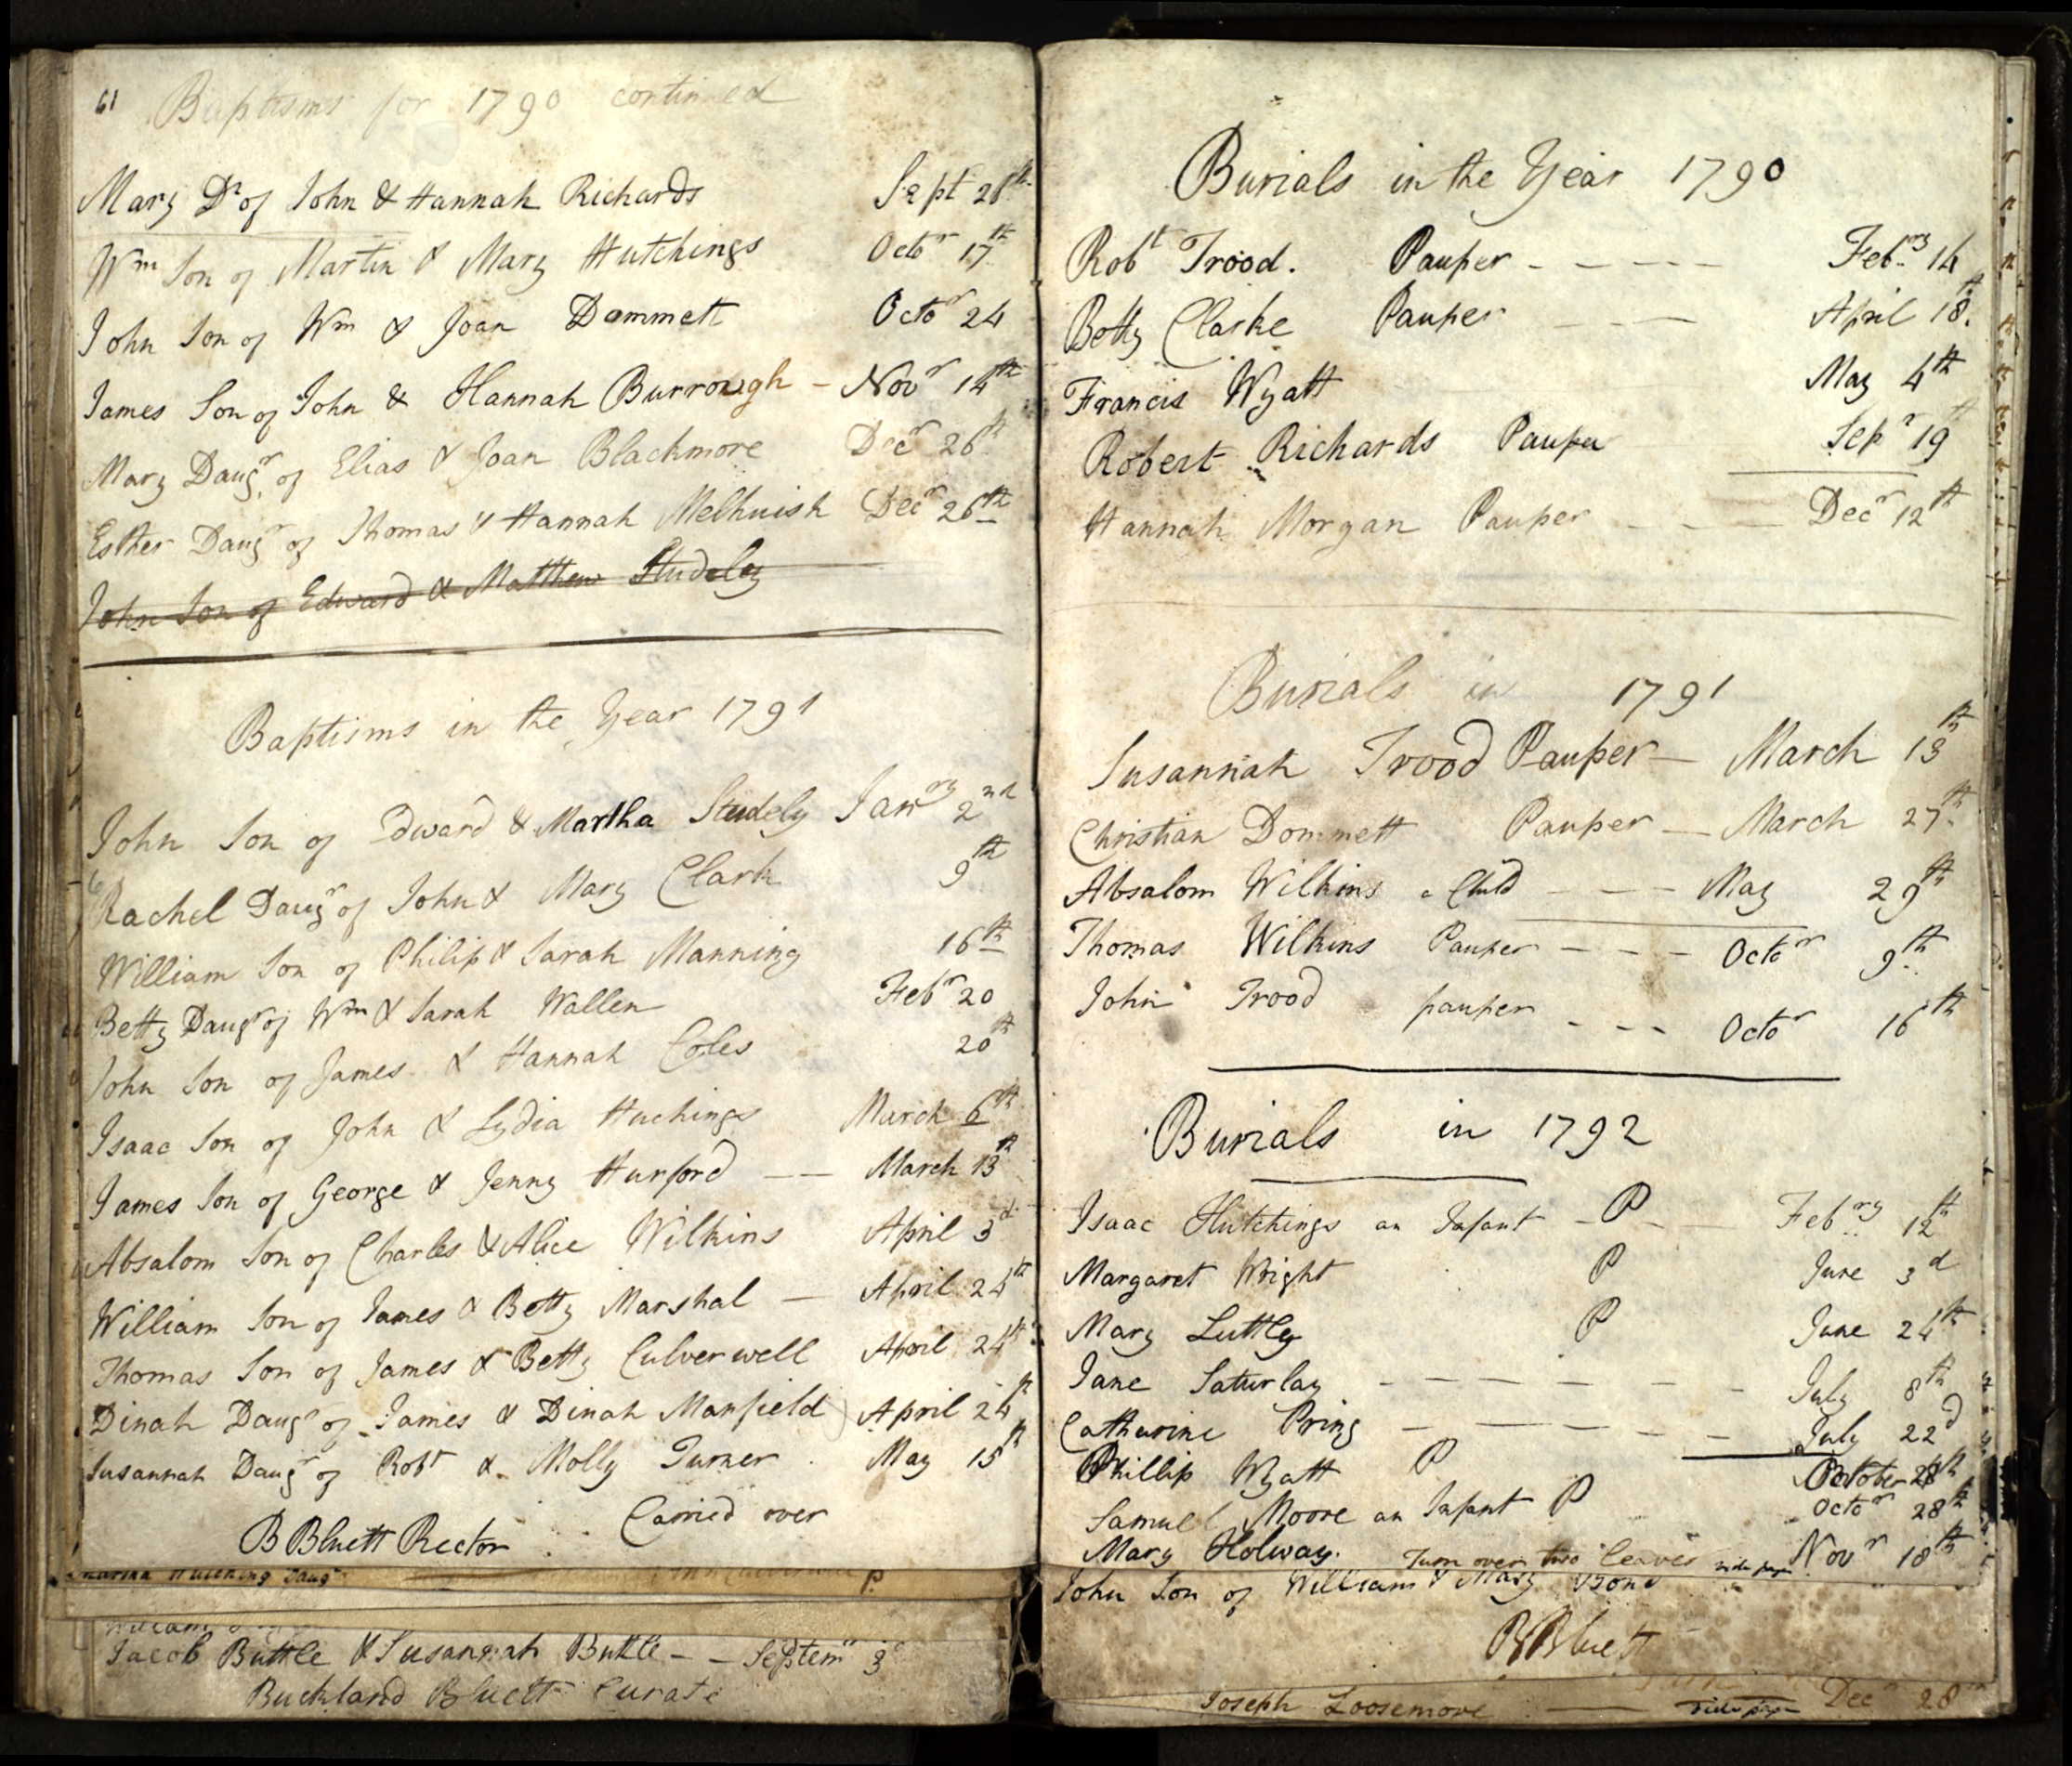 61 Baptisms for 1790 continued
Mary Dr of John & Hannah Richards Sept 28th
Wm Son of Martin & Mary Hutchings Octor 17th
John Son of Wm & Joan Dommett Octor 24
James Son of John & Hannah Burrough - Novr 14th
Mary Daugr of Elias & Joan Blackmore Decr 26th
Esther Daugr of Thomas & Hannah Melhuish Decr 26th
John Son of Edward & Matthew Studeley
Baptisms in the Year 1791
John Son of Edward & Martha Studely Janry 2nd
Rachel Daugr of John & Mary Clark 9th
William Son of Philip & Sarah Manning 16th
Betty Daugr of Wm & Sarah Wallen Febr 20
John Son of James & Hannah Coles 20th
Isaac Son of John & Lydia Huchings March 6th
James Son of George & Jenny Hurford -- March 13th
Absalom Son of Charles & Alice Wilkins April 3d
William Son of James & Betty Marshal - April 24th
Thomas Son of James & Betty Culverwell April 24th
Dinah Daugr of James & Dinah Manfield April 24th
Susannah Daugr of Robt & Molly Turner May 15th
Carried over
B Bluett Rector
P.
Jacob Buttle & Susannah Buttle - - Septemr 3d
Buckland Bluett Curate
Burials in the Year 1790
Robt Trood. Pauper - - - - - Febry 14
Betty Clarke Pauper - - - April 18th
Francis Wyatt May 4th
Robert Richards Pauper Sepr 19th
Hannah Morgan Pauper - - - Decr 12th
Burials in 1791
Susannah Trood Pauper - March 13th
Christian Dommett Pauper - March 27th
Absalom Wilkins a Child - - - May 29th
Thomas Wilkins Pauper - - - Octor 9th
John Trood pauper - - - Octor 16th
Burials in 1792
Isaac Hutchings an Infant - P - Febry 12th
Margaret Wright P June 3d
Mary Luttley P June 24th
Jane Saturlay - - - - - - - July 8th
Catharine Pring - - - - - - July 22d
Phillip Wyatt P October 28th
Samuel Moore an Infant P Octor 28th
Mary Holway. Turn over two leaves Novr 18th
John Son of William & Mary Bond
B Bluett
Joseph Loosemore -- Decr 28th